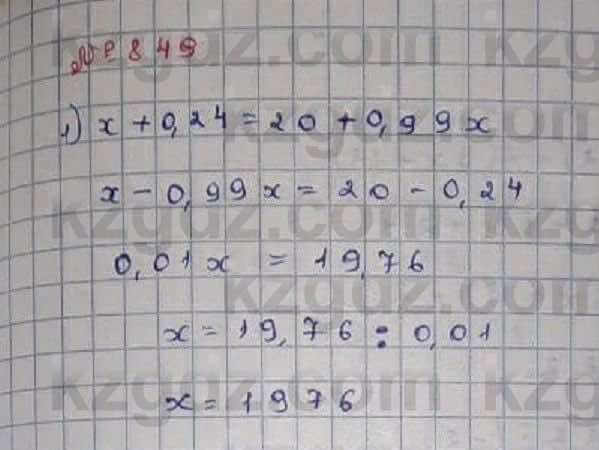 № 849
1) x + 0,24 = 20 + 0,99x
x - 0,99x = 20 - 0,24
0,01x = 19,76
x = 19,76 : 0,01
x = 1976
kzgdz.com